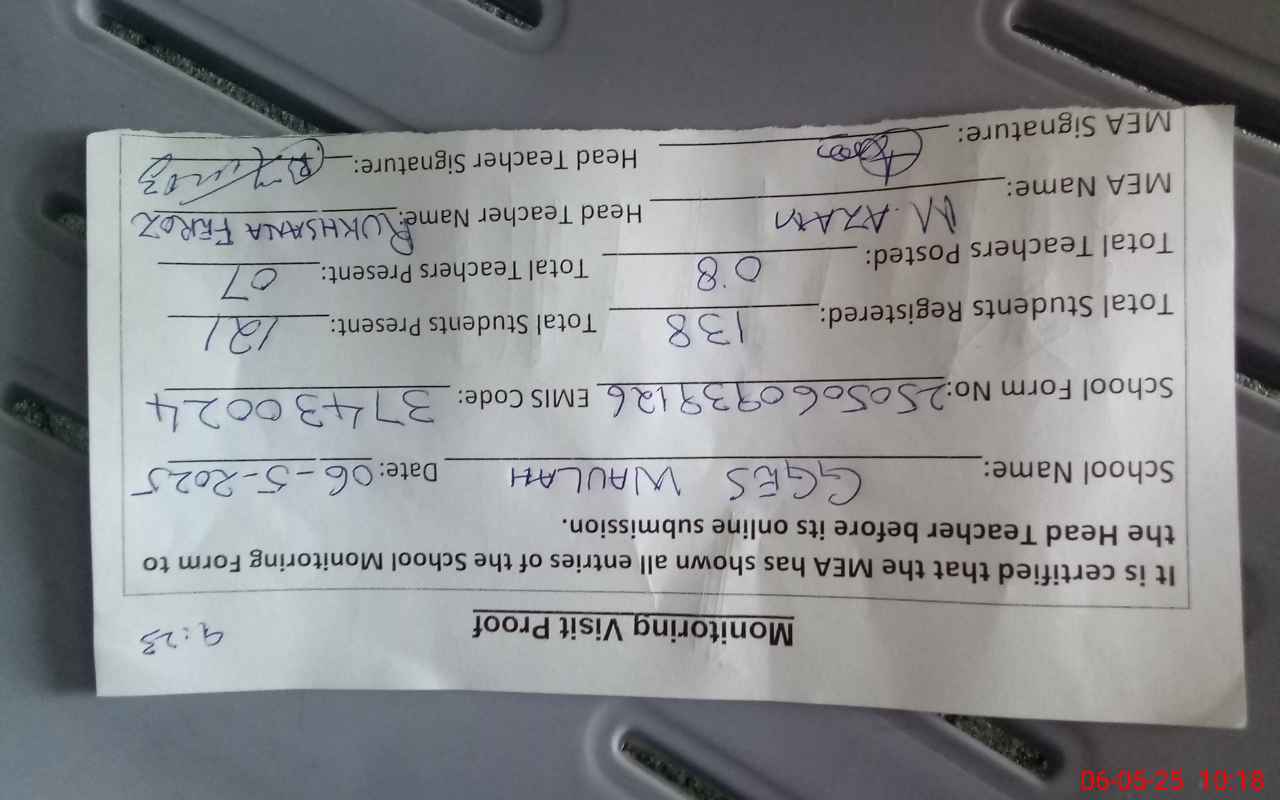 Monitoring Visit Proof 9:23
It is certified that the MEA has shown all entries of the School Monitoring Form to
the Head Teacher before its online submission.
School Name: GGES WAULAH Date: 06-5-2025
School Form No: 2505060939126 EMIS Code: 37430024
Total Students Registered: 138 Total Students Present: 121
Total Teachers Posted: 08 Total Teachers Present: 07
MEA Name: M. AZAM Head Teacher Name: RUKHSANA FEROZ
MEA Signature: Head Teacher Signature:
06-05-25 10:18